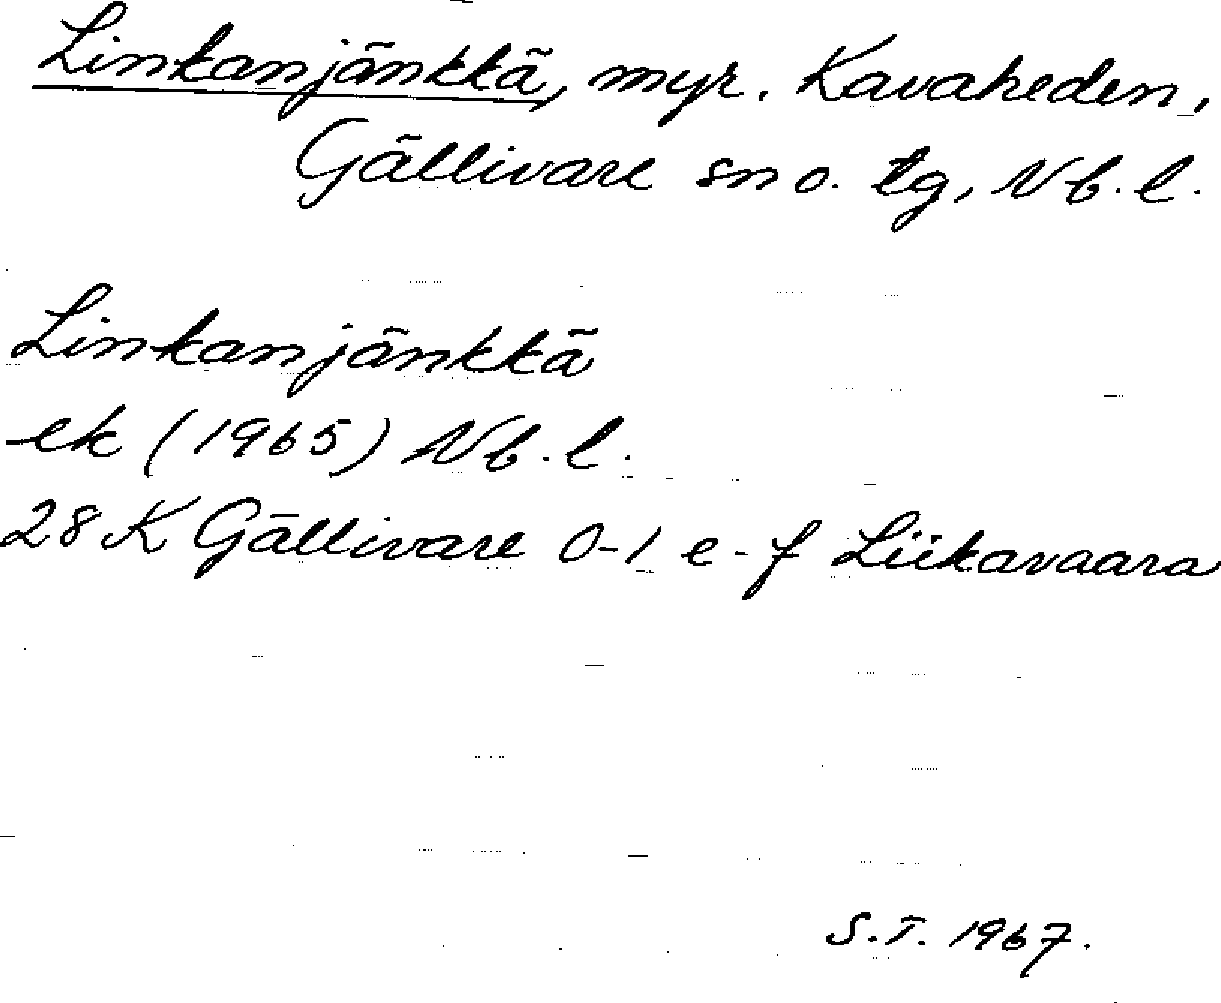 Linkanjänkkä, myr. Kavaheden,
Gällivare sn o. tg, Nb. l.
Linkanjänkkä
ek (1965) Nb. l.
28 K Gällivare 0-1 e-f Liikavaara
S.T. 1967.